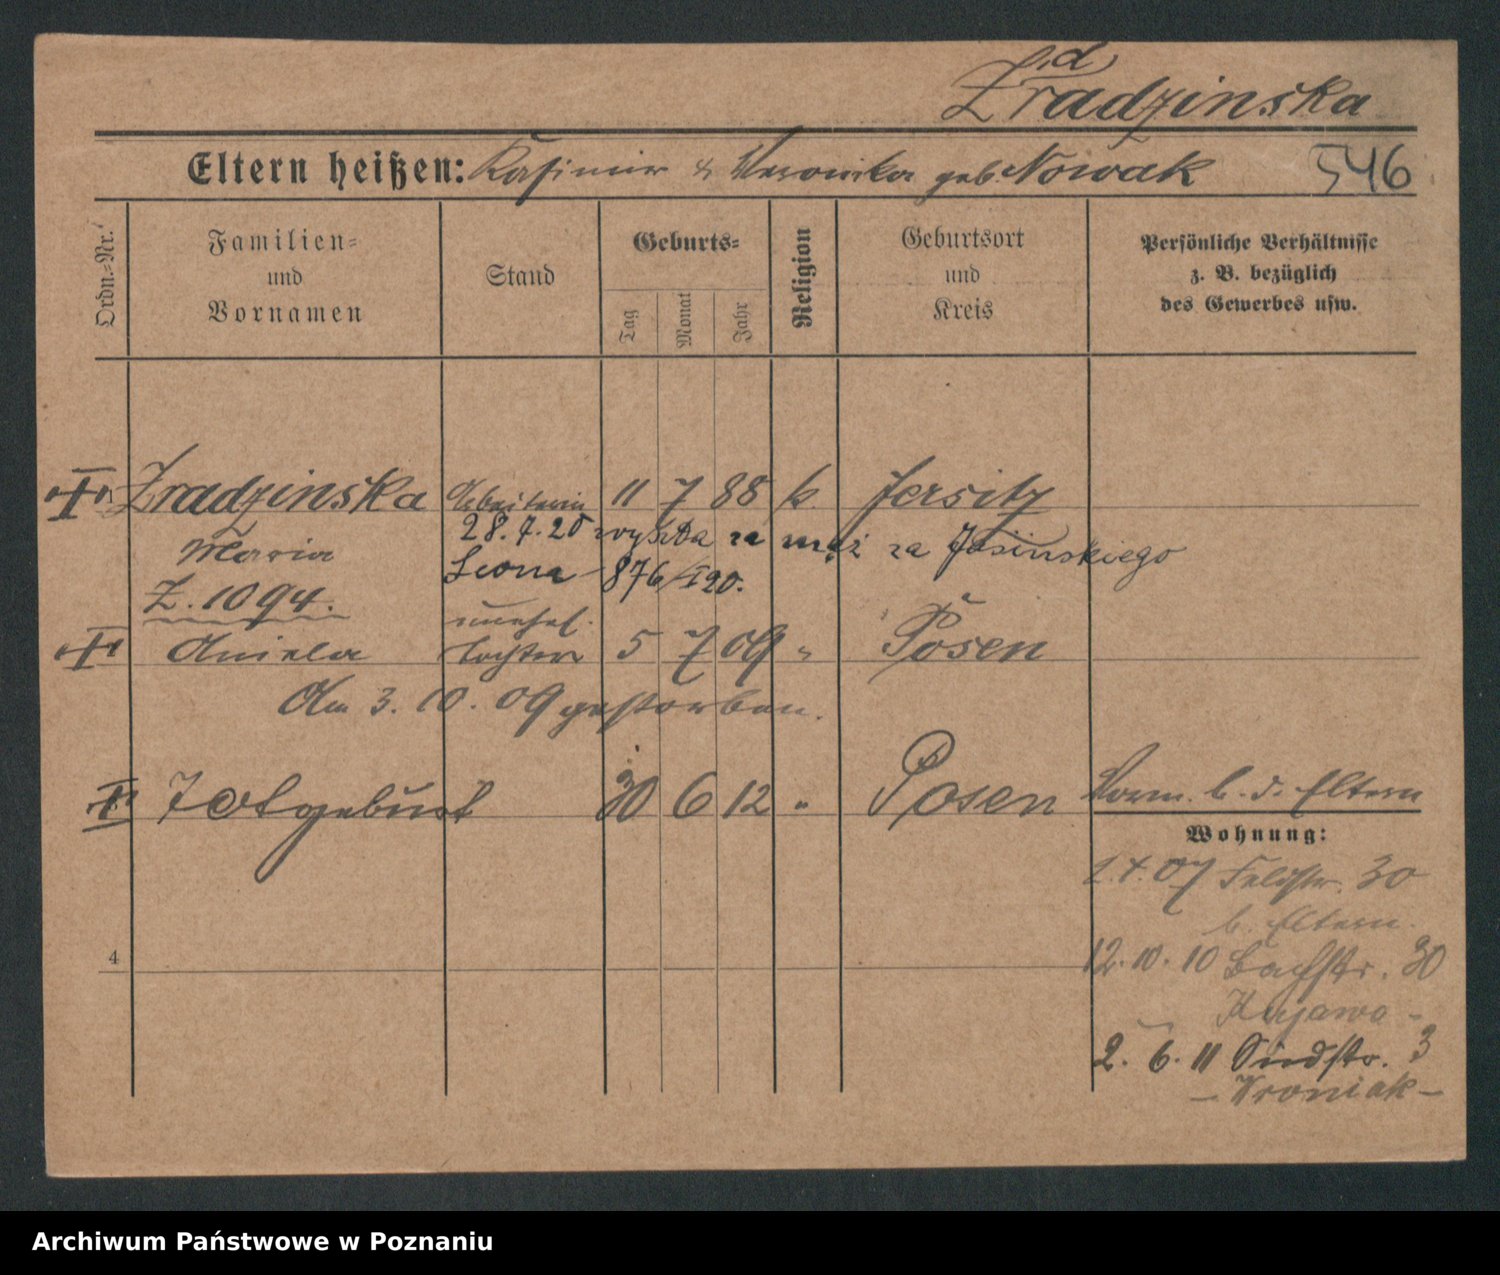 d
Zradzinska
Eltern heißen: Kasimir & Veronika geb. Nowak 546
Ordn.-Nr.
Familien- und Vornamen
Stand
Geburts-
Tag
Monat
Jahr
Religion
Geburtsort und Kreis
Persönliche Verhältnisse z. B. bezüglich des Gewerbes usw.
I Zradzinska Arbeiterin 11 7 88 k. Jersitz
Maria 28.7.20 wyszła za mąż za Jasinskiego
Leona - 876/I 20.
Z. 1094.
unehel.
II Aniela Tochter 5 7 09 " Posen
Am 3. 10. 09 gestorben.
II Totgeburt 30 6 12 " Posen Vorm. b. d. Eltern
Wohnung:
1.4.07 Feldstr. 30
b. Eltern.
4
12.10.10 Bachstr. 30
Kujawa -
2. 6. 11 Südstr. 3
- Wroniak -
Archiwum Państwowe w Poznaniu